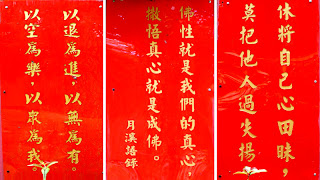 休將自己心田昧，
莫把他人過失揚
佛性就是我們的真心，
徹悟真心就是成佛。
月溪語錄
以退為進，以無為有。
以空為樂，以眾為我。